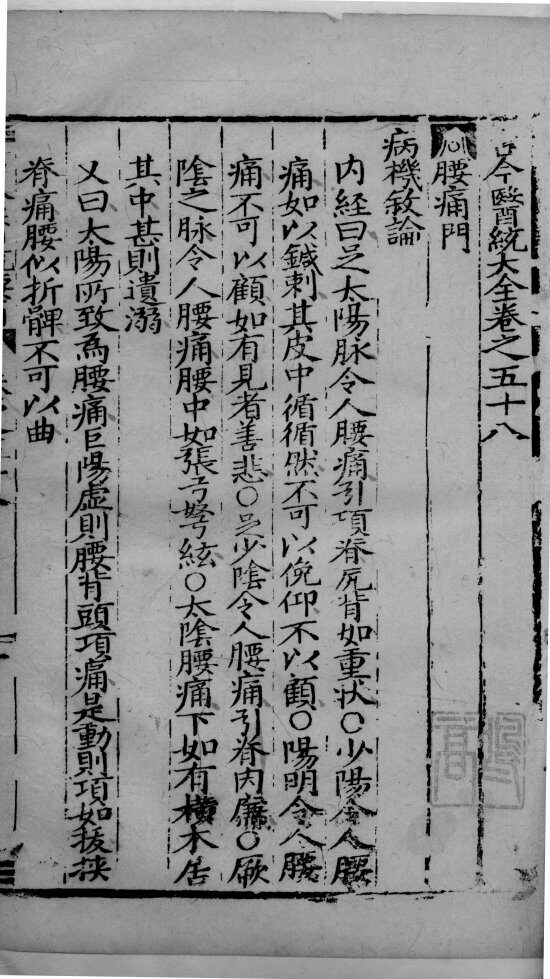 古今醫統大全卷之五十八
腰痛門
病機敘論
内経曰足太陽脉令人腰痛引項脊尻背如重状○少陽令人腰
痛如以鍼刺其皮中循循然不可以俛仰不以顧○陽明令人腰
痛不可以顧如有見者善悲○足少陰令人腰痛引脊内廉○厥
陰之脉令人腰痛腰中如張弓弩絃○太陰腰痛下如有横木居
其中甚則遺溺
又曰太陽所致為腰痛巨陽虚則腰背頭項痛是動則項如拔挾
脊痛腰似折髀不可以曲